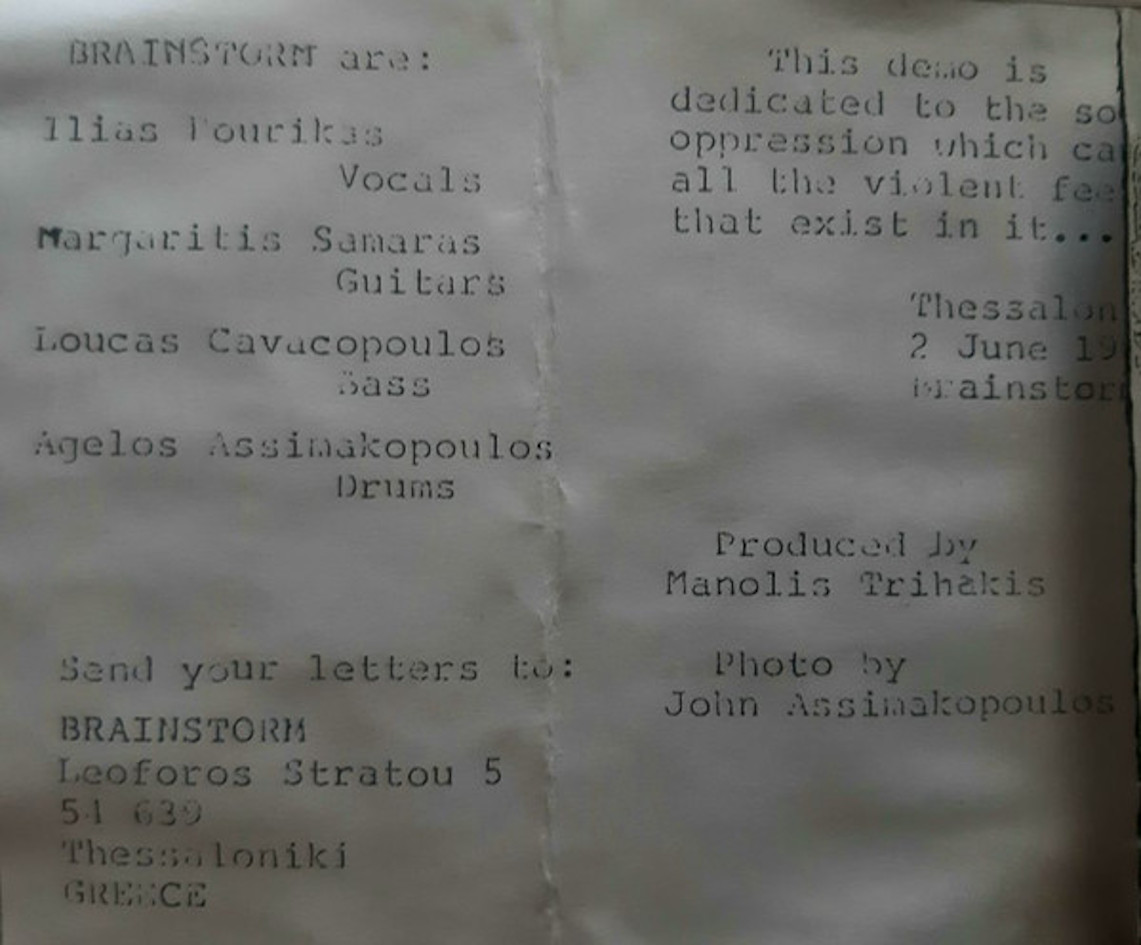 BRAINSTORM are:
Ilias
Vocals
Margaritis Samaras
Guitars
Loucas Cavacopoulos
Bass
Agelos Assimakopoulos
Drums
Send your letters to:
BRAINSTORM
Leoforos Stratou 5
54 639
Thessaloniki
GREECE
This demo is
dedicated to the so
oppression which ca
all the violent fee
that exist in it...
Thessalon
2 June 19
Brainstor
Produced by
Manolis Trihakis
Photo by
John Assimakopoulos